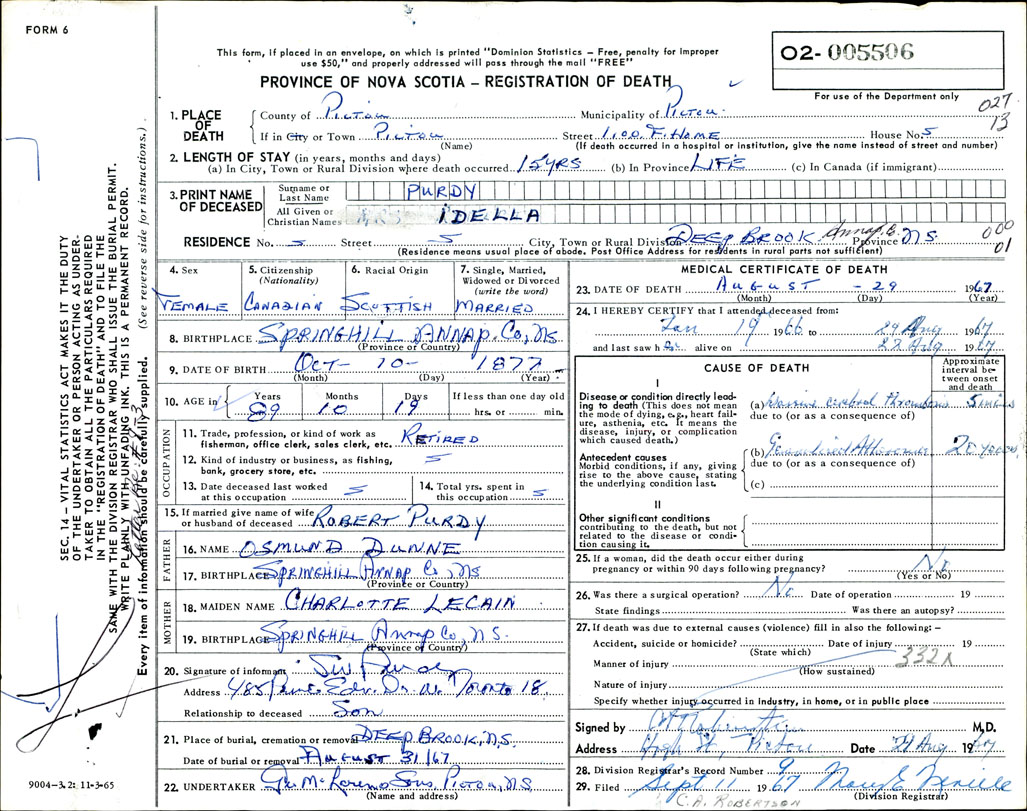 FORM 6
This form, if placed in an envelope, on which is printed "Dominion Statistics – Free, penalty for improper
use $50," and properly addressed will pass through the mail "FREE"
PROVINCE OF NOVA SCOTIA – REGISTRATION OF DEATH
O2- 005506
For use of the Department only
027
13
1. PLACE OF DEATH
County of PICTOU Municipality of PICTOU
If in City or Town PICTOU Street I.O.O.F. HOME House No. S
(Name) (If death occurred in a hospital or institution, give the name instead of street and number)
2. LENGTH OF STAY (in years, months and days)
(a) In City, Town or Rural Division where death occurred 15 YRS (b) In Province LIFE (c) In Canada (if immigrant)
3. PRINT NAME OF DECEASED
Surname or Last Name PURDY
All Given or Christian Names MRS IDELLA
RESIDENCE No. S Street S City, Town or Rural Division DEEP BROOK Annap. Co. Province N.S. 000
(Residence means usual place of abode. Post Office Address for residents in rural parts not sufficient) 01
4. Sex FEMALE
5. Citizenship (Nationality) CANADIAN
6. Racial Origin SCOTTISH
7. Single, Married, Widowed or Divorced (write the word) MARRIED
8. BIRTHPLACE SPRINGHILL ANNAP. CO, NS
(Province or Country)
9. DATE OF BIRTH OCT- 10- 1877
(Month) (Day) (Year)
10. AGE in Years 89 Months 10 Days 19 If less than one day old hrs. or min.
OCCUPATION
11. Trade, profession, or kind of work as fisherman, office clerk, sales clerk, etc. RETIRED
12. Kind of industry or business, as fishing, bank, grocery store, etc. S
13. Date deceased last worked at this occupation S
14. Total yrs. spent in this occupation S
15. If married give name of wife or husband of deceased ROBERT PURDY
FATHER
16. NAME OSMUND DUNNE
17. BIRTHPLACE SPRINGHILL ANNAP CO, NS
(Province or Country)
MOTHER
18. MAIDEN NAME CHARLOTTE LECAIN
19. BIRTHPLACE SPRINGHILL ANNAP CO, N.S.
(Province or Country)
20. Signature of informant Purdy
Address 485 Toronto 18
Relationship to deceased SON
21. Place of burial, cremation or removal DEEP BROOK, N.S.
Date of burial or removal AUGUST 31/67
22. UNDERTAKER Sons, PICTOU, N.S.
(Name and address)
MEDICAL CERTIFICATE OF DEATH
23. DATE OF DEATH AUGUST - 29 1967
(Month) (Day) (Year)
24. I HEREBY CERTIFY that I attended deceased from:
Jan 19 66 to 29 Aug 1967
and last saw her alive on 27 Aug 1967
CAUSE OF DEATH
Approximate interval between onset and death
I
Disease or condition directly leading to death (This does not mean the mode of dying, e.g., heart failure, asthenia, etc. It means the disease, injury, or complication which caused death.)
(a) cerebral thrombosis 5
due to (or as a consequence of)
Antecedent causes
Morbid conditions, if any, giving rise to the above cause, stating the underlying condition last.
(b) Generalized 20 years
due to (or as a consequence of)
(c)
II
Other significant conditions
contributing to the death, but not related to the disease or condition causing it.
25. If a woman, did the death occur either during
pregnancy or within 90 days following pregnancy? No
(Yes or No)
26. Was there a surgical operation? No Date of operation 19
State findings Was there an autopsy?
27. If death was due to external causes (violence) fill in also the following:–
Accident, suicide or homicide? Date of injury 19
(State which) 332X
Manner of injury
(How sustained)
Nature of injury
Specify whether injury occurred in Industry, in home, or in public place
Signed by M.D.
Address High St, Pictou Date 29 Aug 1967
28. Division Registrar's Record Number 9
29. Filed Sept 11 1967 Mary E
(Division Registrar)
C. A. ROBERTSON
SEC. 14 – VITAL STATISTICS ACT MAKES IT THE DUTY
OF THE UNDERTAKER OR PERSON ACTING AS UNDER-
TAKER TO OBTAIN ALL THE PARTICULARS REQUIRED
IN THE "REGISTRATION OF DEATH" AND TO FILE THE
SAME WITH THE DIVISION REGISTRAR WHO SHALL ISSUE THE BURIAL PERMIT.
WRITE PLAINLY WITH UNFADING INK. THIS IS A PERMANENT RECORD.
Every item of information should be carefully supplied. (See reverse side for instructions.)
9004-3.2: 11-3-65